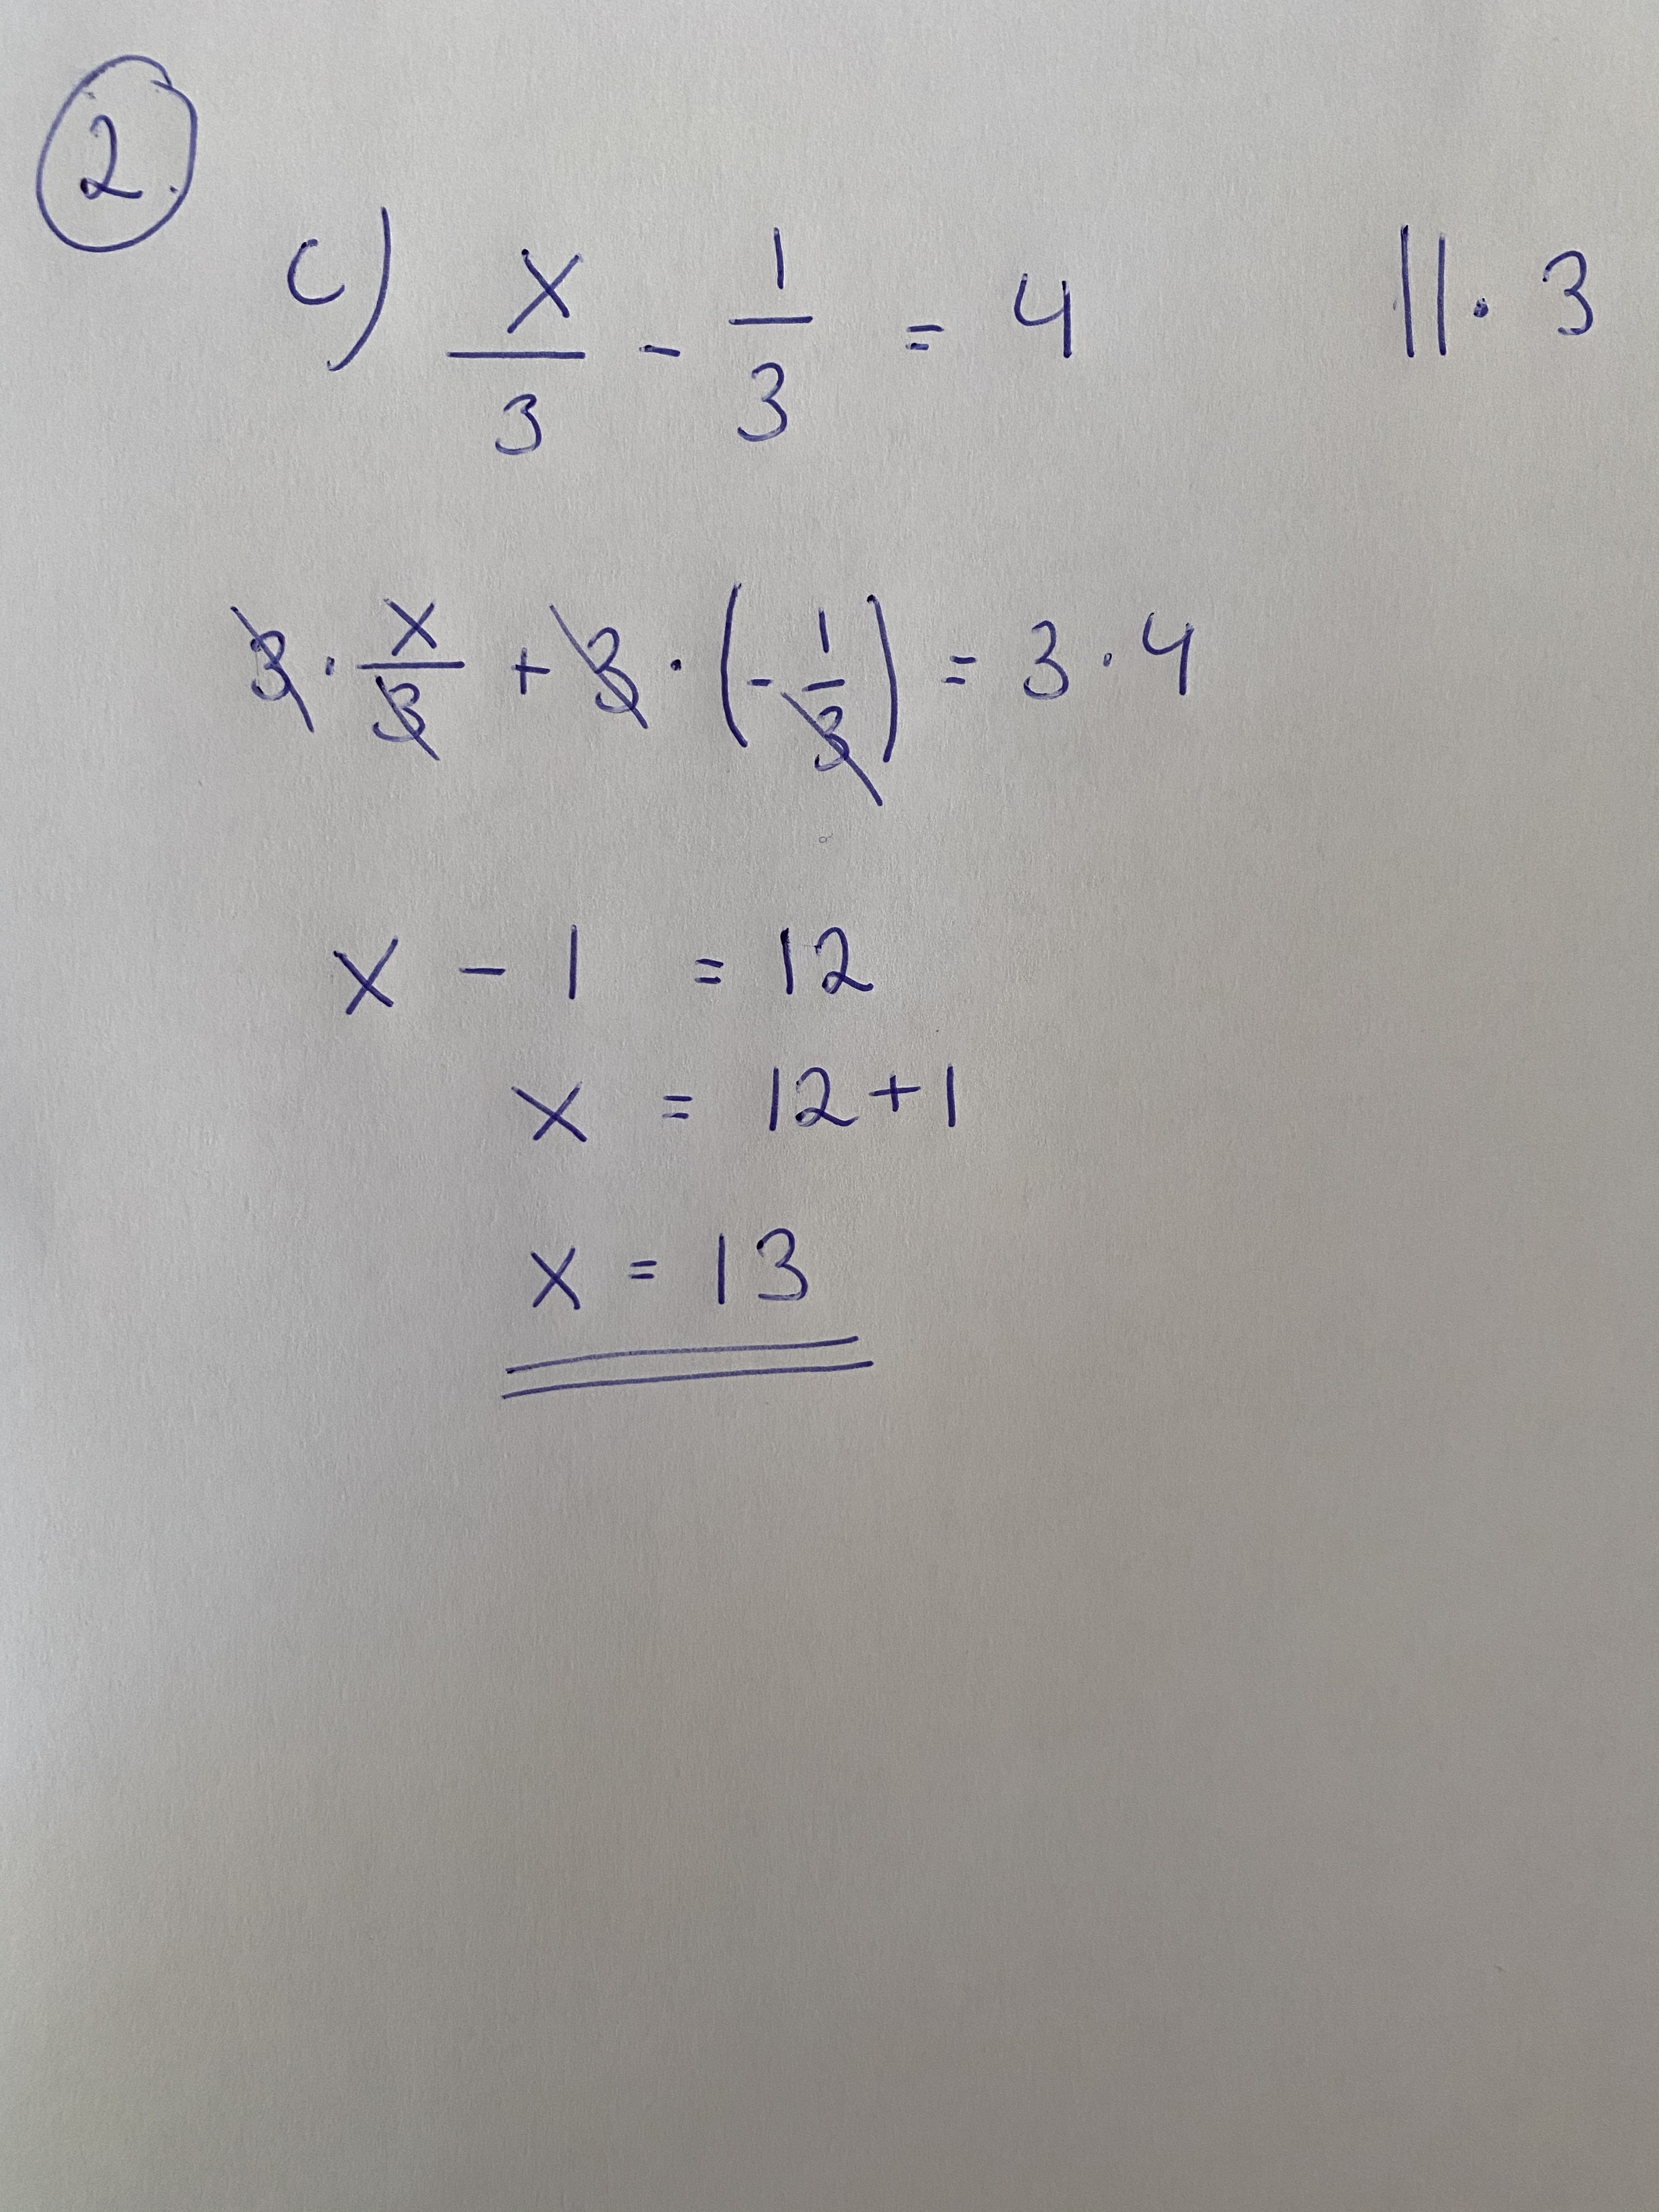 2.
c) x/3 - 1/3 = 4 ||· 3
3 · x/3 + 3 · (-1/3) = 3 · 4
x - 1 = 12
x = 12 + 1
x = 13